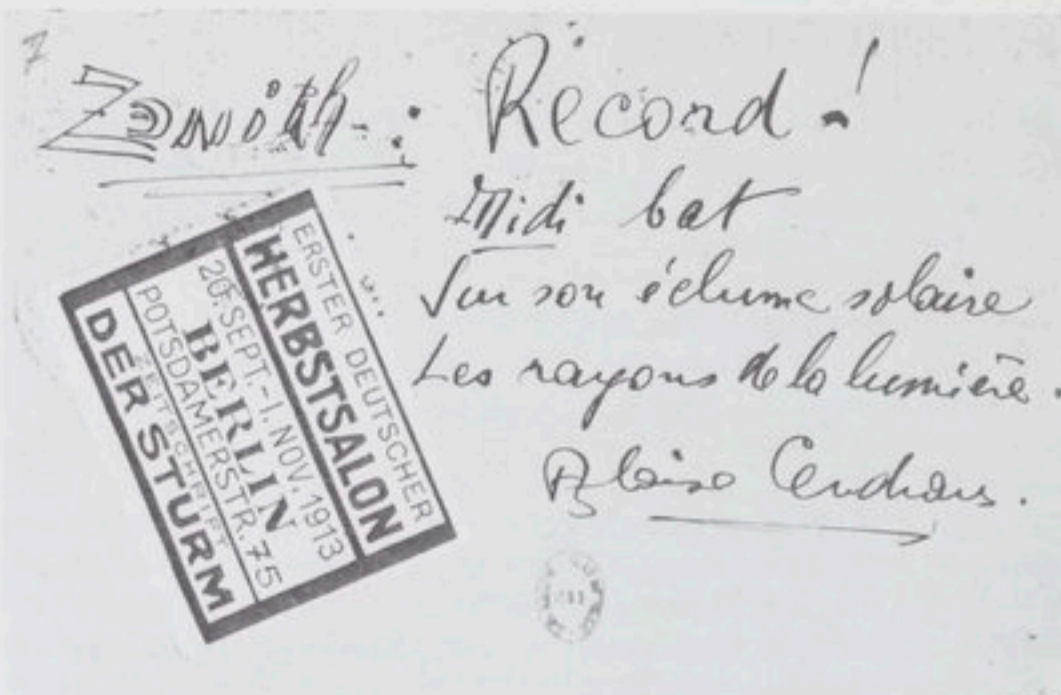 Zenith : Record !
Midi bat
Sur son éclume solaire
Les rayons de la lumière.
Blaise Cendrars.
ERSTER DEUTSCHER
HERBSTSALON
20. SEPT.-1. NOV. 1913
BERLIN
POTSDAMERSTR. 75
ZEITSCHRIFT
DER STURM